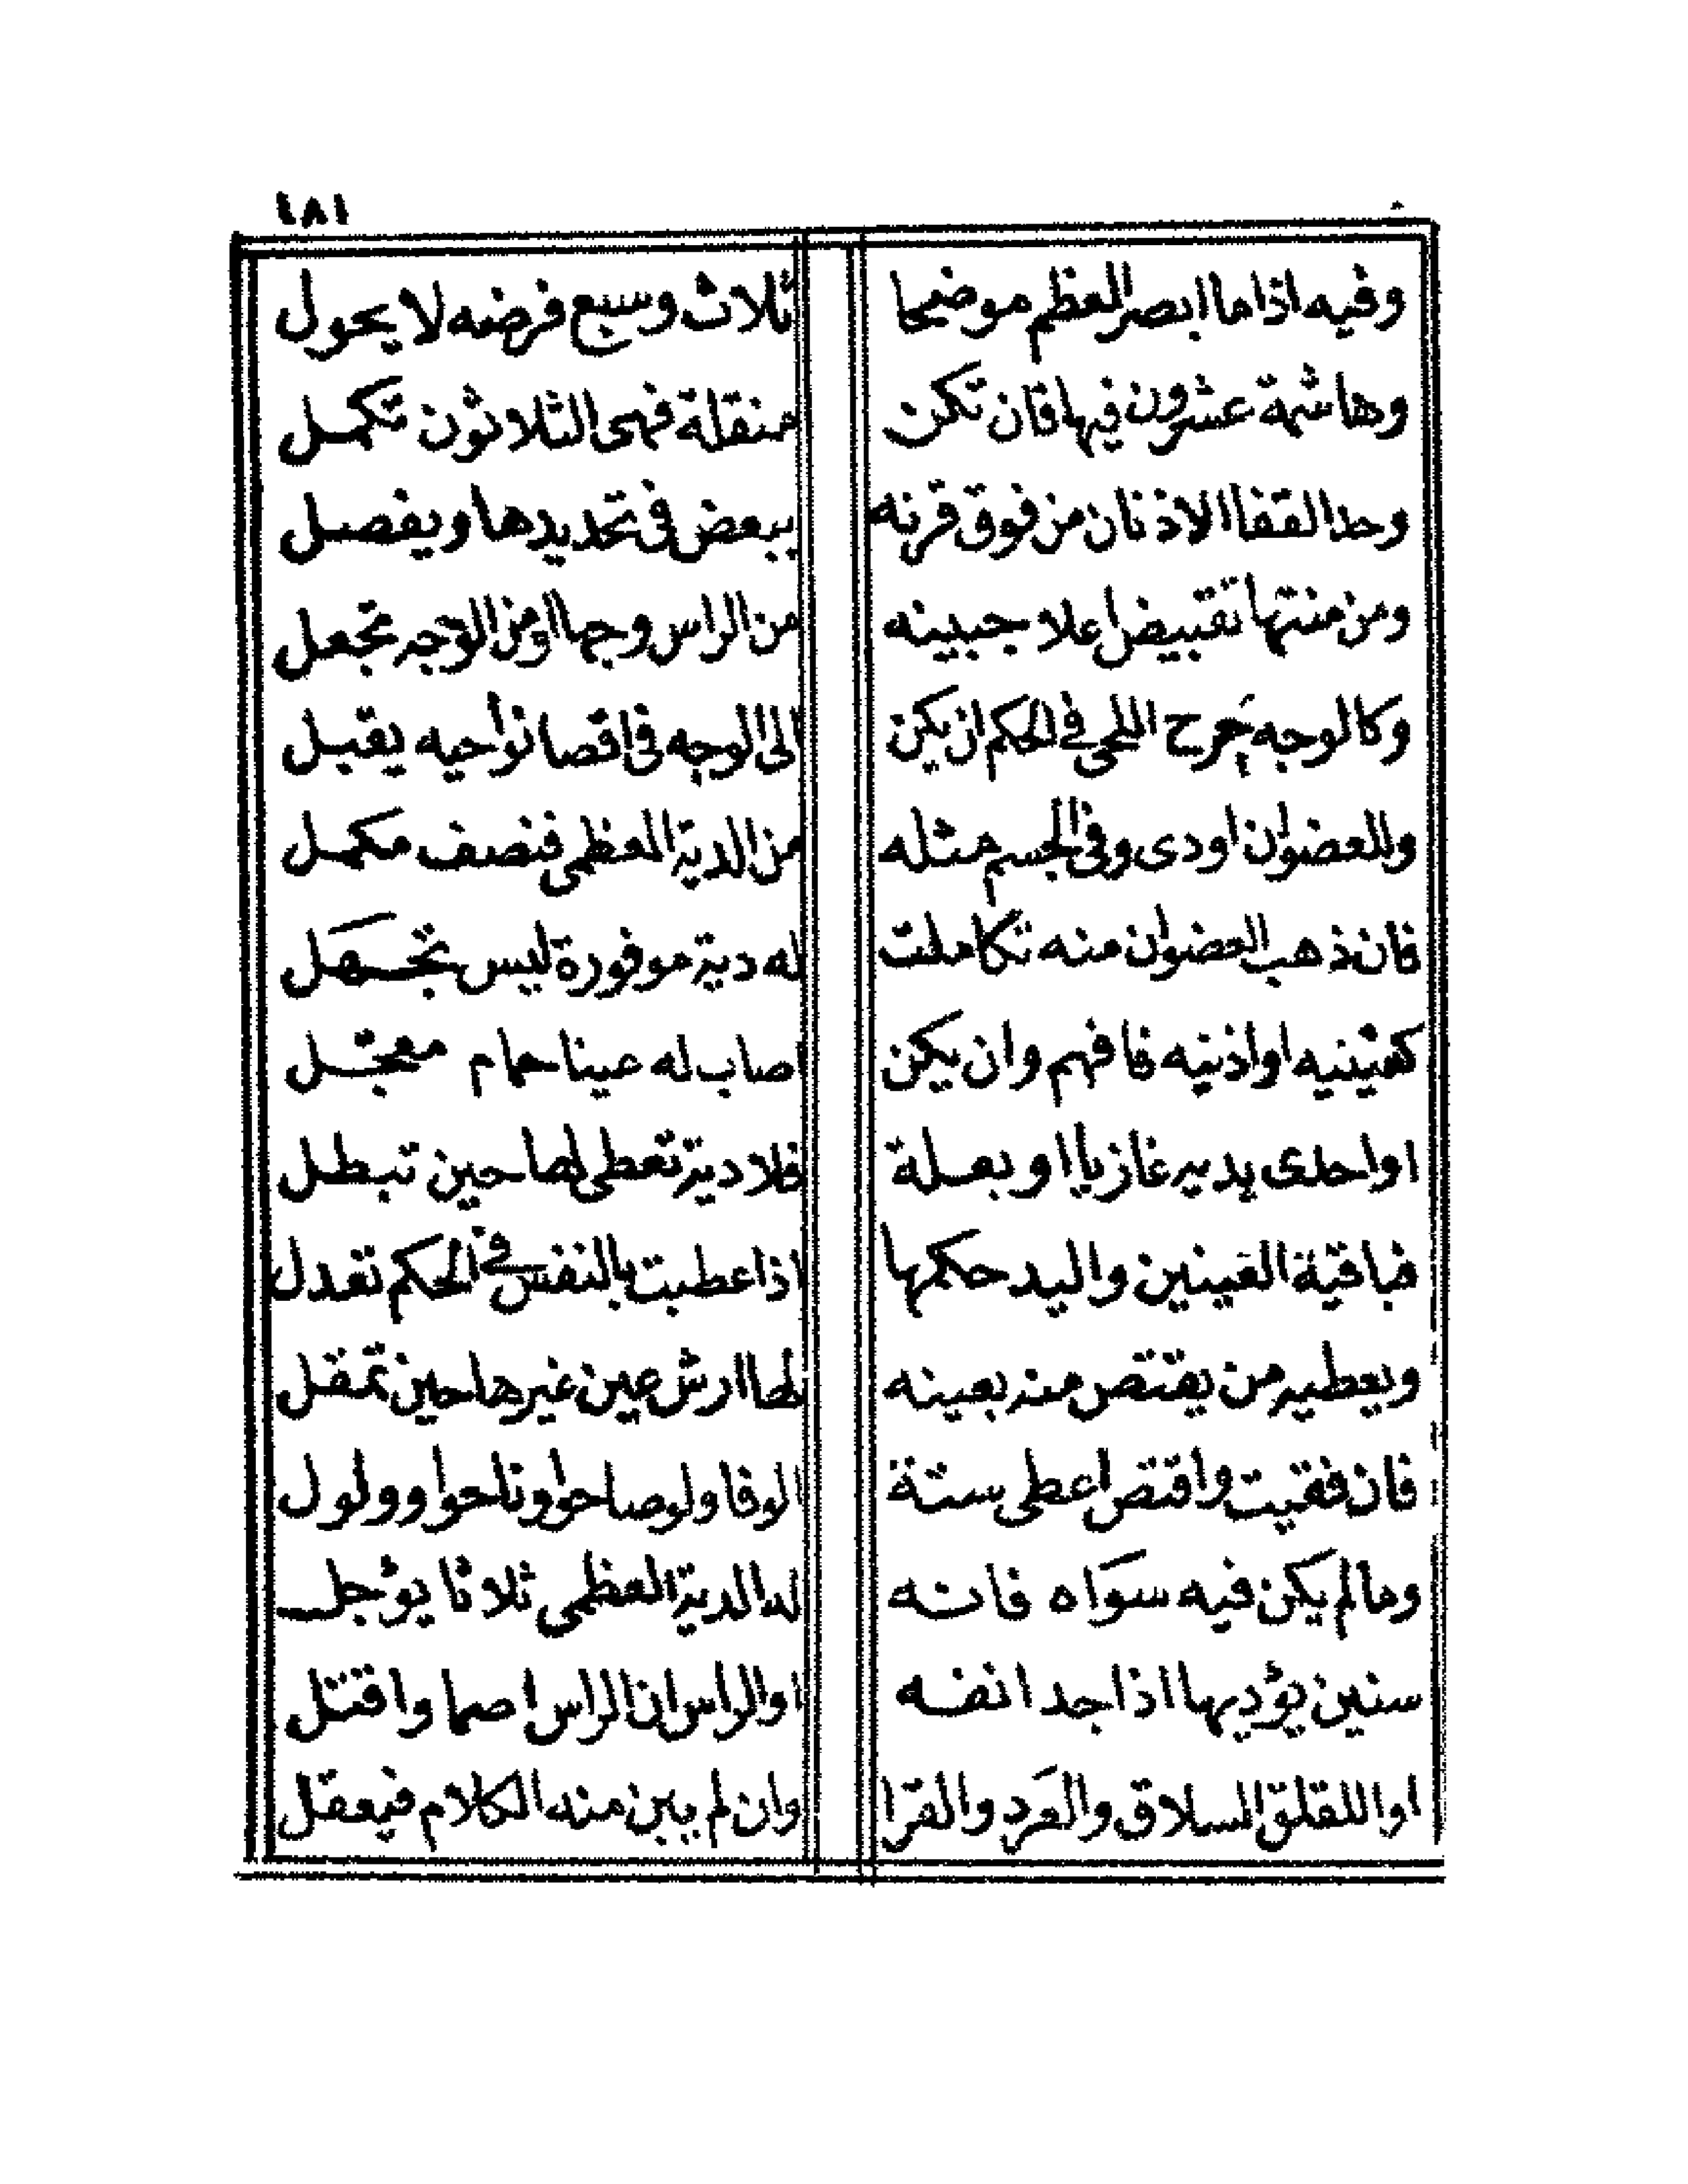 ١٨١
وفيه اذا ما ابصر العظم موضحا ثلاث وسبع فرضه لا يحول
وهاشمة عشرون فيها فان تكن منقلة فهى الثلاثون تكمل
وحد القفا الاذنان من فوق قرنه ببعض فى تحديدها ويفصل
ومن منتها تقبيض اعلا جبينه من الراس وجها اومن الوجه تجعل
وكالوجه جرح اللحى فى الحكم ان يكن الى الوجه فى اقصا نواحيه يقبل
وللعضوان اودى وفى الجسم مثله من الدية العظمى فنصف مكمل
فان ذهب العضوان منه تكاملت له دية موفورة ليس تجهل
كعينيه او اذنيه فافهم وان يكن اصاب له عينا حمام معجل
او احدى يديه غازيا او بعلة فلا دية تعطى لها حين تبطل
فباقية العينين واليد حكمها اذا عطبت بالنفس فى الحكم تعدل
ويعطيه من يقتص منه بعينه لها ارش عين غيرها حين تمقل
فان فقيت واقتص اعطى ستة الوفا ولو صاحوا وناحوا وولول
وما لم يكن فيه سواه فانه له الدية العظمى ثلاثا يؤجل
سنين يؤديها اذا جد انفه او الراس ان الراس اصما واقتل
او اللقلق السلاق والعرد والقرا وان لم يبن منه الكلام فيعقل